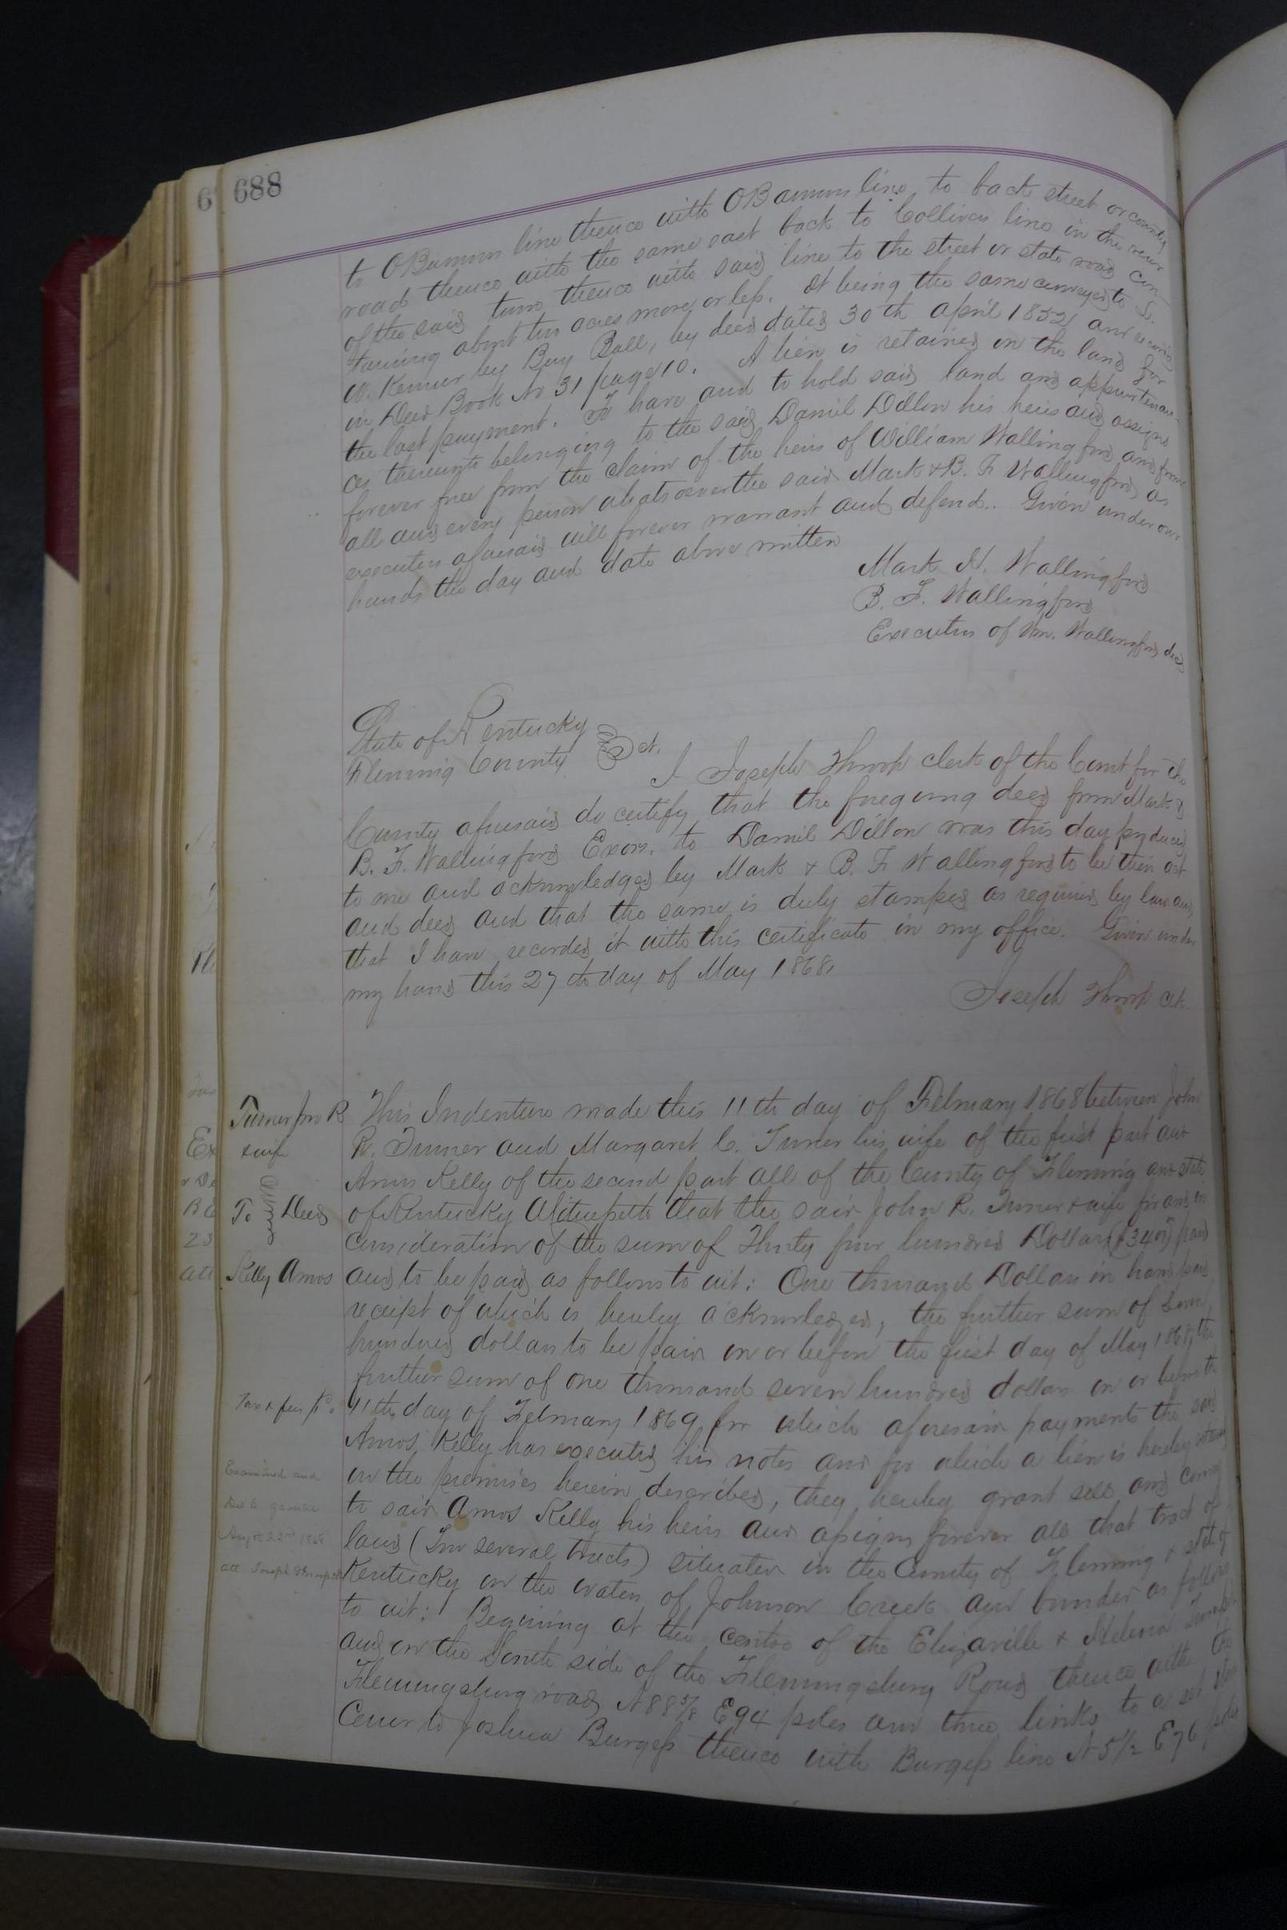 688
to OBannon line thence with OBannon line to back street or county
road thence with the same east back to Collivers line in the rear
of the said town thence with said line to the street or state road con-
taining about two acres more or less. It being the same conveyed to
W. Kenner by Buy Ball, by deed dated 30th april 1852 and
in Deed Book No 31 page 10. A lien is retained on the land for
the last payment. To have and to hold said land and appurtenan-
ces thereunto belonging to the said Daniel Dillon his heirs and assigns
forever free from the claim of the heirs of William Wallingford and from
all and every person whatsoever the said Mark & B. F. Wallingford as
executors aforesaid will forever warrant and defend. Given under our
hands the day and date above written
Mark H. Wallingford
B. F. Wallingford
Executors of Wm. Wallingford decd
State of Kentucky
Fleming County Sct.
I Joseph Throop clerk of the Court for the
County aforesaid do certify that the foregoing deed from Mark &
B. F. Wallingford Exors. to Daniel Dillon was this day produced
to me and acknowledged by Mark & B. F. Wallingford to be their act
and deed and that the same is duly stamped as required by law and
that I have recorded it with this certificate in my office. Given under
my hand this 27th day of May 1868.
Joseph Throop clk
Turner Jno R
& wife
To Deed
Kelly Amos
This Indenture made this 11th day of February 1868 between John
R. Turner and Margaret C. Turner his wife of the first part and
Amos Kelly of the second part all of the County of Fleming and state
of Kentucky Witnesseth that the said John R. Turner & wife for and in
consideration of the sum of Thirty four hundred Dollars ($3400) paid
and to be paid as follows to wit: One thousand Dollars in hand paid
receipt of which is hereby acknowledged, the further sum of Seven
hundred dollars to be paid on or before the first day of May 1868, the
further sum of one thousand seven hundred dollars on or before the
Tax & fee pd.
11th day of February 1869 for which aforesaid payments the said
Amos Kelly has executed his notes and for which a lien is hereby retained
Examined and
on the premises herein described, they hereby grant sell and convey
to said Amos Kelly his heirs and assigns forever all that tract of
Augt 22nd 1868
land (In several tracts) situated in the County of Fleming & state of
att Joseph Throop clk
Kentucky on the waters of Johnson Creek and bounded as follows
to wit: Begining at the centre of the Elizaville & Helena
and on the South side of the Flemingsburg Road thence with the
Flemingsburg road N 88 5/8 E 94 poles and three links to a set stone
Corner to Joshua Burgess thence with Burgess line N 5 1/2 E 76 poles